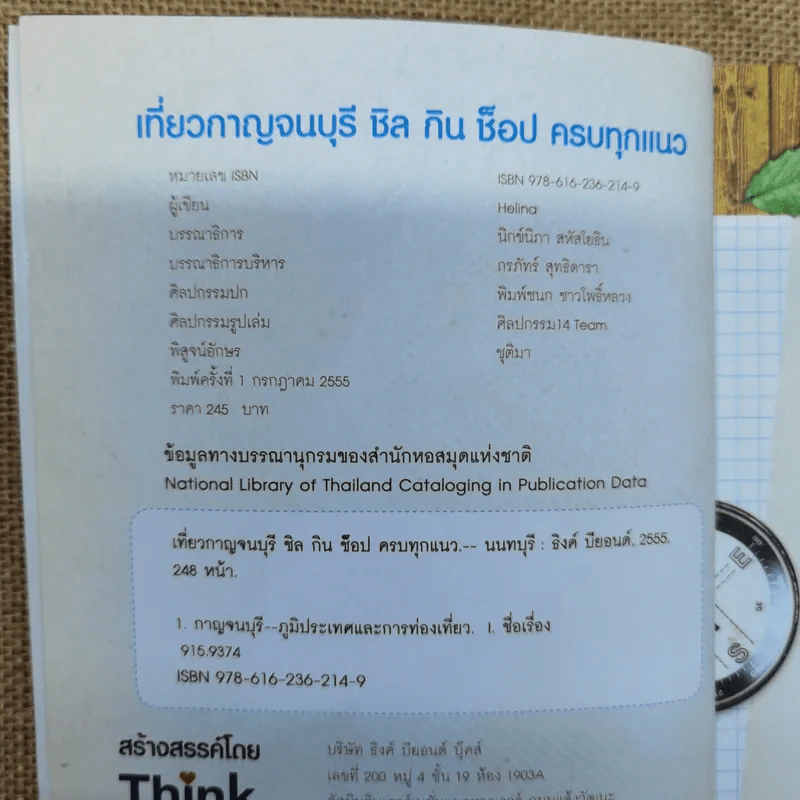 เที่ยวกาญจนบุรี ชิล กิน ช็อป ครบทุกแนว
หมายเลข ISBN ISBN 978-616-236-214-9
ผู้เขียน Helina
บรรณาธิการ นิกข์นิภา สหัสโยธิน
บรรณาธิการบริหาร กรภัทร์ สุทธิดารา
ศิลปกรรมปก พิมพ์ชนก ชาวโพธิ์หลวง
ศิลปกรรมรูปเล่ม ศิลปกรรม14 Team
พิสูจน์อักษร ชุติมา
พิมพ์ครั้งที่ 1 กรกฎาคม 2555
ราคา 245 บาท
ข้อมูลทางบรรณานุกรมของสำนักหอสมุดแห่งชาติ
National Library of Thailand Cataloging in Publication Data
เที่ยวกาญจนบุรี ชิล กิน ช็อป ครบทุกแนว.-- นนทบุรี : ธิงค์ บียอนด์, 2555.
248 หน้า.
1. กาญจนบุรี--ภูมิประเทศและการท่องเที่ยว. I. ชื่อเรื่อง
915.9374
ISBN 978-616-236-214-9
สร้างสรรค์โดย
Think
บริษัท ธิงค์ บียอนด์ บุ๊คส์
เลขที่ 200 หมู่ 4 ชั้น 19 ห้อง 1903A
E
S